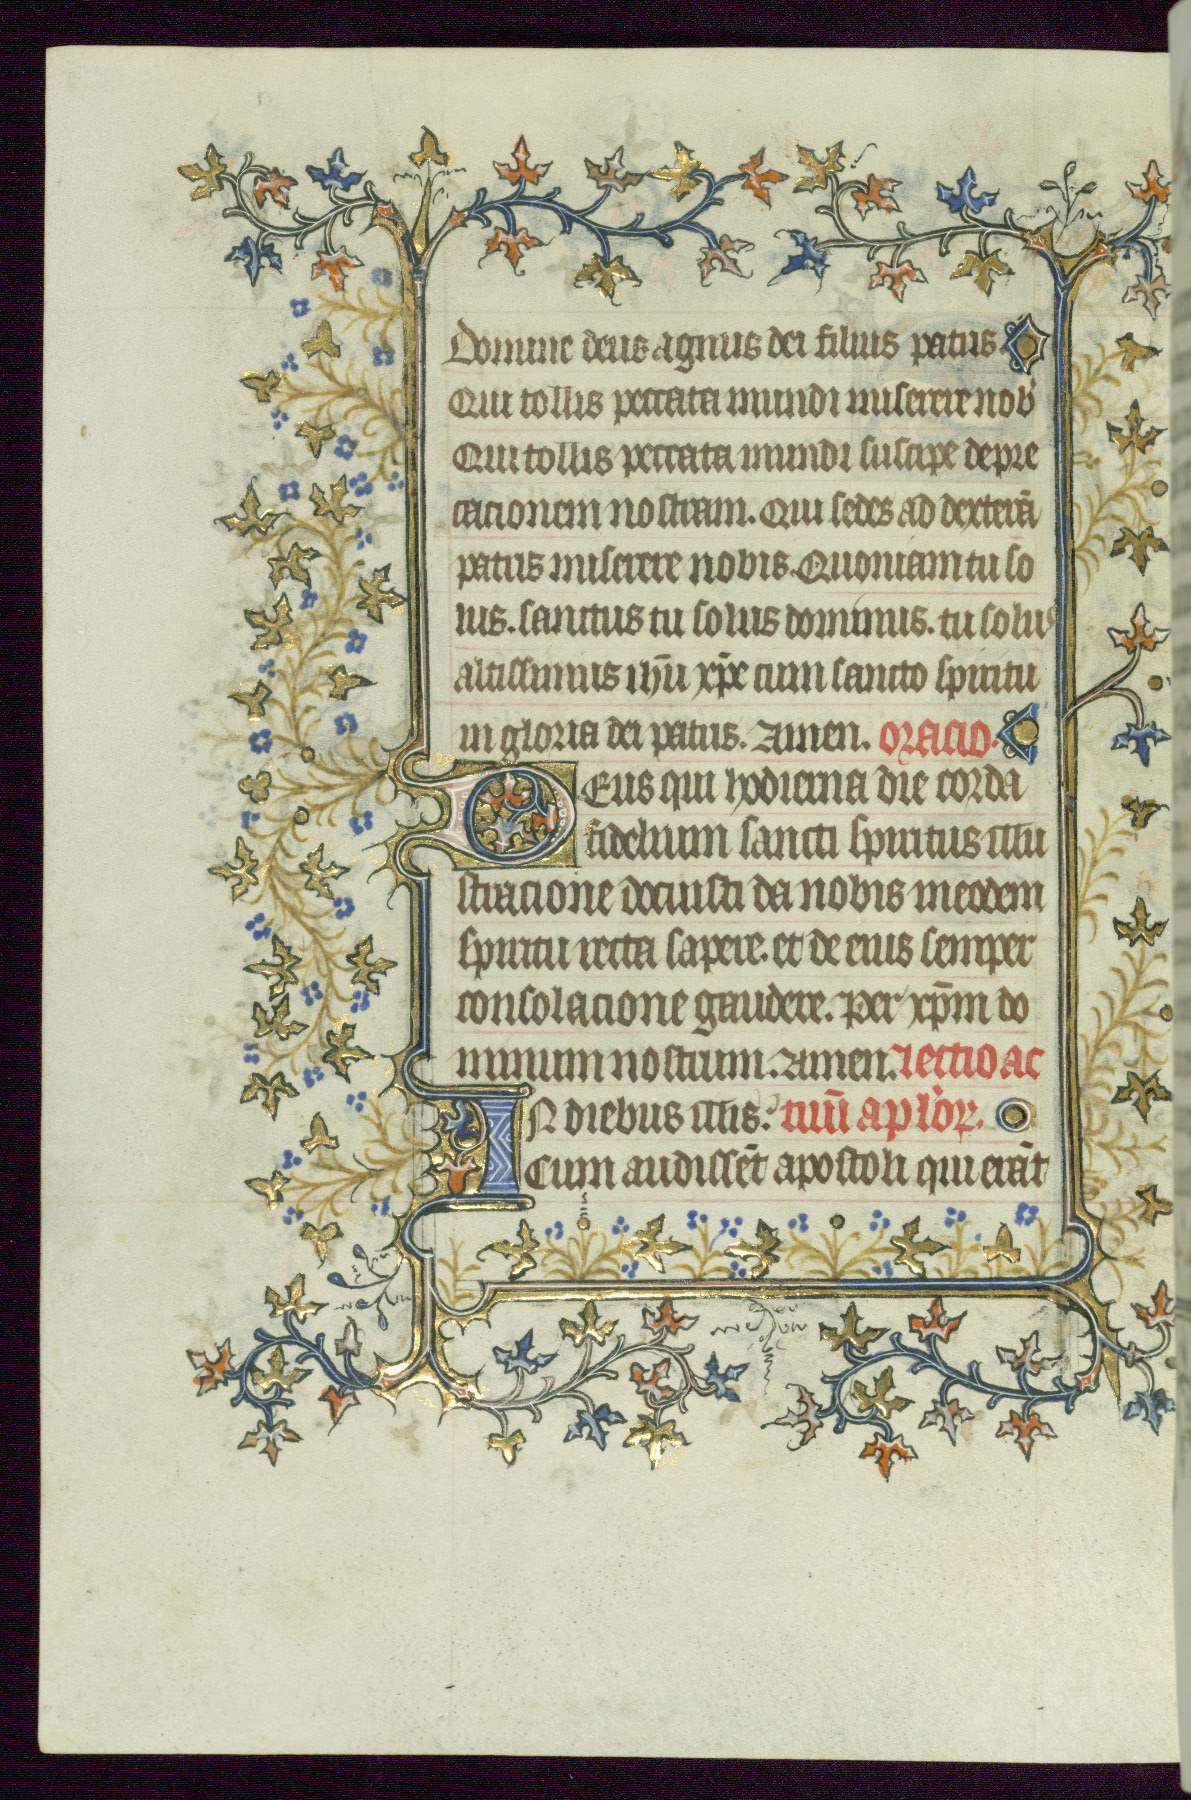 Domine deus agnus dei filius patris
Qui tollis peccata mundi miserere nob'
Qui tollis peccata mundi suscipe depre
cacionem nostram. Qui sedes ad dexterā
patris miserere nobis. Quoniam tu so
lus. sanctus tu solus dominus. tu solus
altissimus ihū xp̄e cum sancto spiritu
in gloria dei patris. Amen. oracio.
DEus qui hodierna die corda
fidelium sancti spiritus illu
stracione docuisti da nobis in eodem
spiritu recta sapere. et de eius semper
consolacione gaudere. Per xp̄m do
minum nostrum. Amen. lectio ac
IN diebus illis: tuū aplo'r.
Cum audissēt apostoli qui erāt